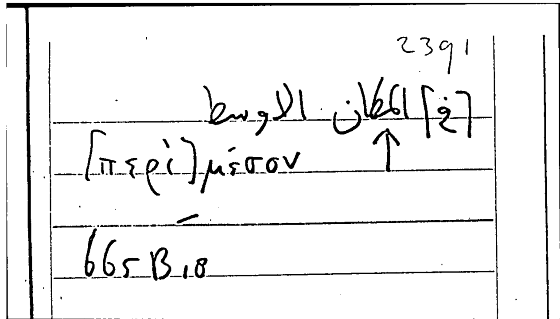 2391
[في] المكان الاوسط
[περὶ] μέσον
665 B 10